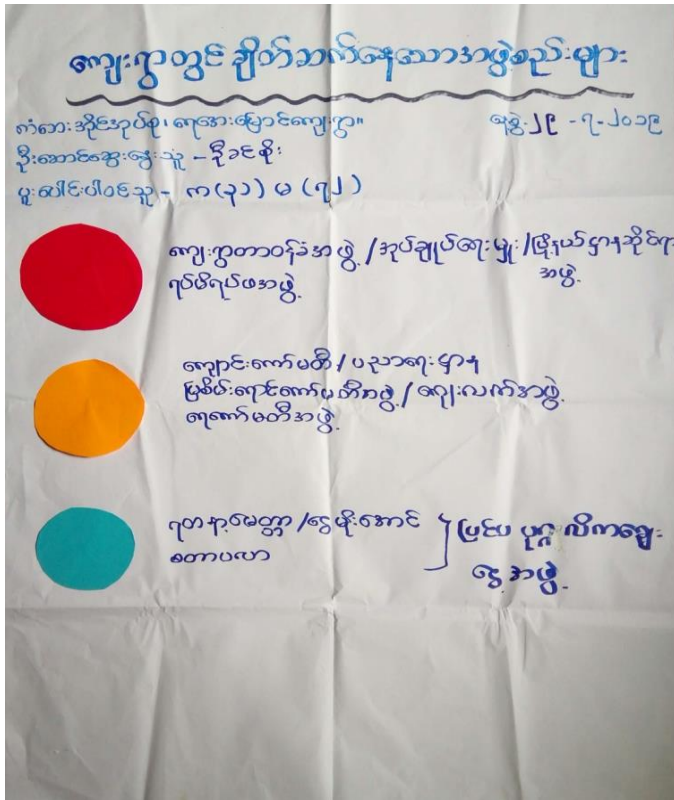 ကျေးရွာတွင် ချိတ်ဆက်နေသောအဖွဲ့စည်းများ
ကံဘေးအုပ်စု၊ ရေအေးမြောင်ကျေးရွာ။
နေ့စွဲ- ၂၉ - ၇ - ၂၀၁၉
ဦးဆောင်ဆွေးနွေးသူ - ဦးခင်စိုး
ပူးပေါင်းပါဝင်သူ - က (၃၁) မ (၇၂)
ကျေးရွာတာဝန်ခံအဖွဲ့ / အုပ်ချုပ်ရေးမှူး / မြို့နယ်ဌာနဆိုင်ရာ
အဖွဲ့
ရပ်မိရပ်ဖအဖွဲ့
ကျောင်းကော်မတီ / ပညာရေးဌာန
မြစိမ်းရောင်ကော်မတီအဖွဲ့ / ချေးလက်အဖွဲ့
ရေကော်မတီအဖွဲ့
ရတနာ့မေတ္တာ / ငွေမိုးအောင်
စတာပလာ
ပြင်ပ ပုဂ္ဂလိကချေး
ငွေအဖွဲ့